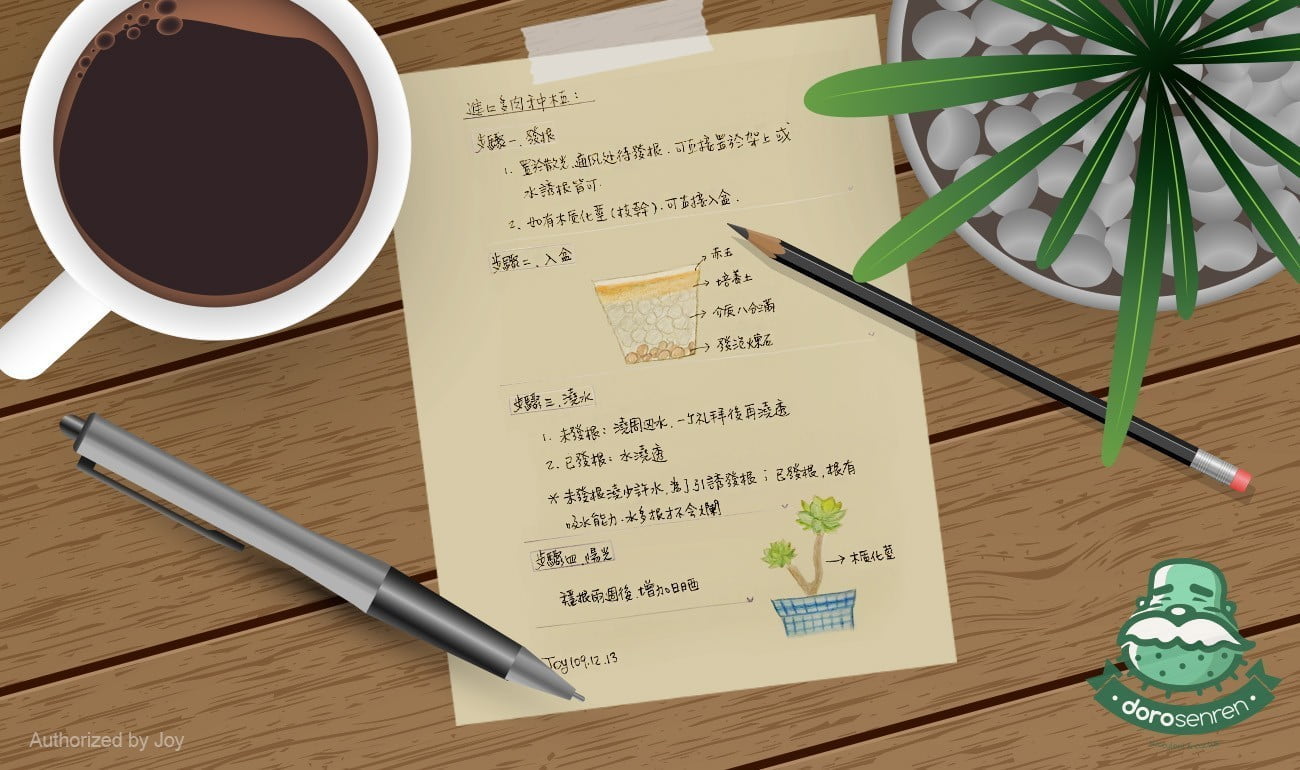 進口多肉种植:
步驟一、發根
1. 置於散光,通风处待發根.可直接置於架上或
水誘根皆可.
2. 如有木质化莖(枝幹).可直接入盆.
步驟二、入盆
赤玉
培养土
介质八分滿
發泡煉石
步驟三、澆水
1. 未發根: 澆周边水.一个礼拜後再澆透
2. 已發根: 水澆透
* 未發根澆少許水,為了引誘發根;已發根,根有
吸水能力.水多根才不会爛
步驟四、陽光
穩根兩週後,增加日晒
木质化莖
Joy109.12.13
Authorized by Joy
dorosenren